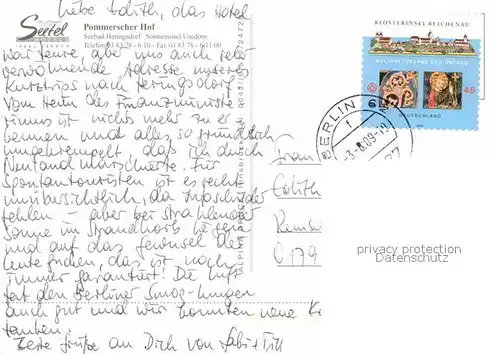 Liebe Edith, das Hotel
Seetel
Pommerscher Hof
Seebad Heringsdorf Sonneninsel Usedom
Telefon 03 83 78 - 6 10 · Fax 03 83 78 - 611 00
war teure aber uns auch sehr
verwöhnende Adresse unseres
Kurztrips nach Heringsdorf.
Vom Heim des Finanzministe-
riums ist nichts mehr zu er-
kennen und alles so gründlich
umgekrempelt, daß ich durch
Neuland marschierte. Für
Spontantouristen ist es recht
unübersichtlich, da Infoschilder
fehlen – aber bei strahlender
Sonne im Strandkorb liegen
und auf das Gewusel der
Leute gucken, das ist noch
immer garantiert! Die Luft
tat den Berliner Smog-Lungen
auch gut und wir konnten neue K
tanken.
Beste Grüße an Dich von
KLOSTERINSEL REICHENAU
WELTKULTURERBE DER UNESCO
45
DEUTSCHLAND
BERLIN
Frau
Edith
privacy protection
Datenschutz